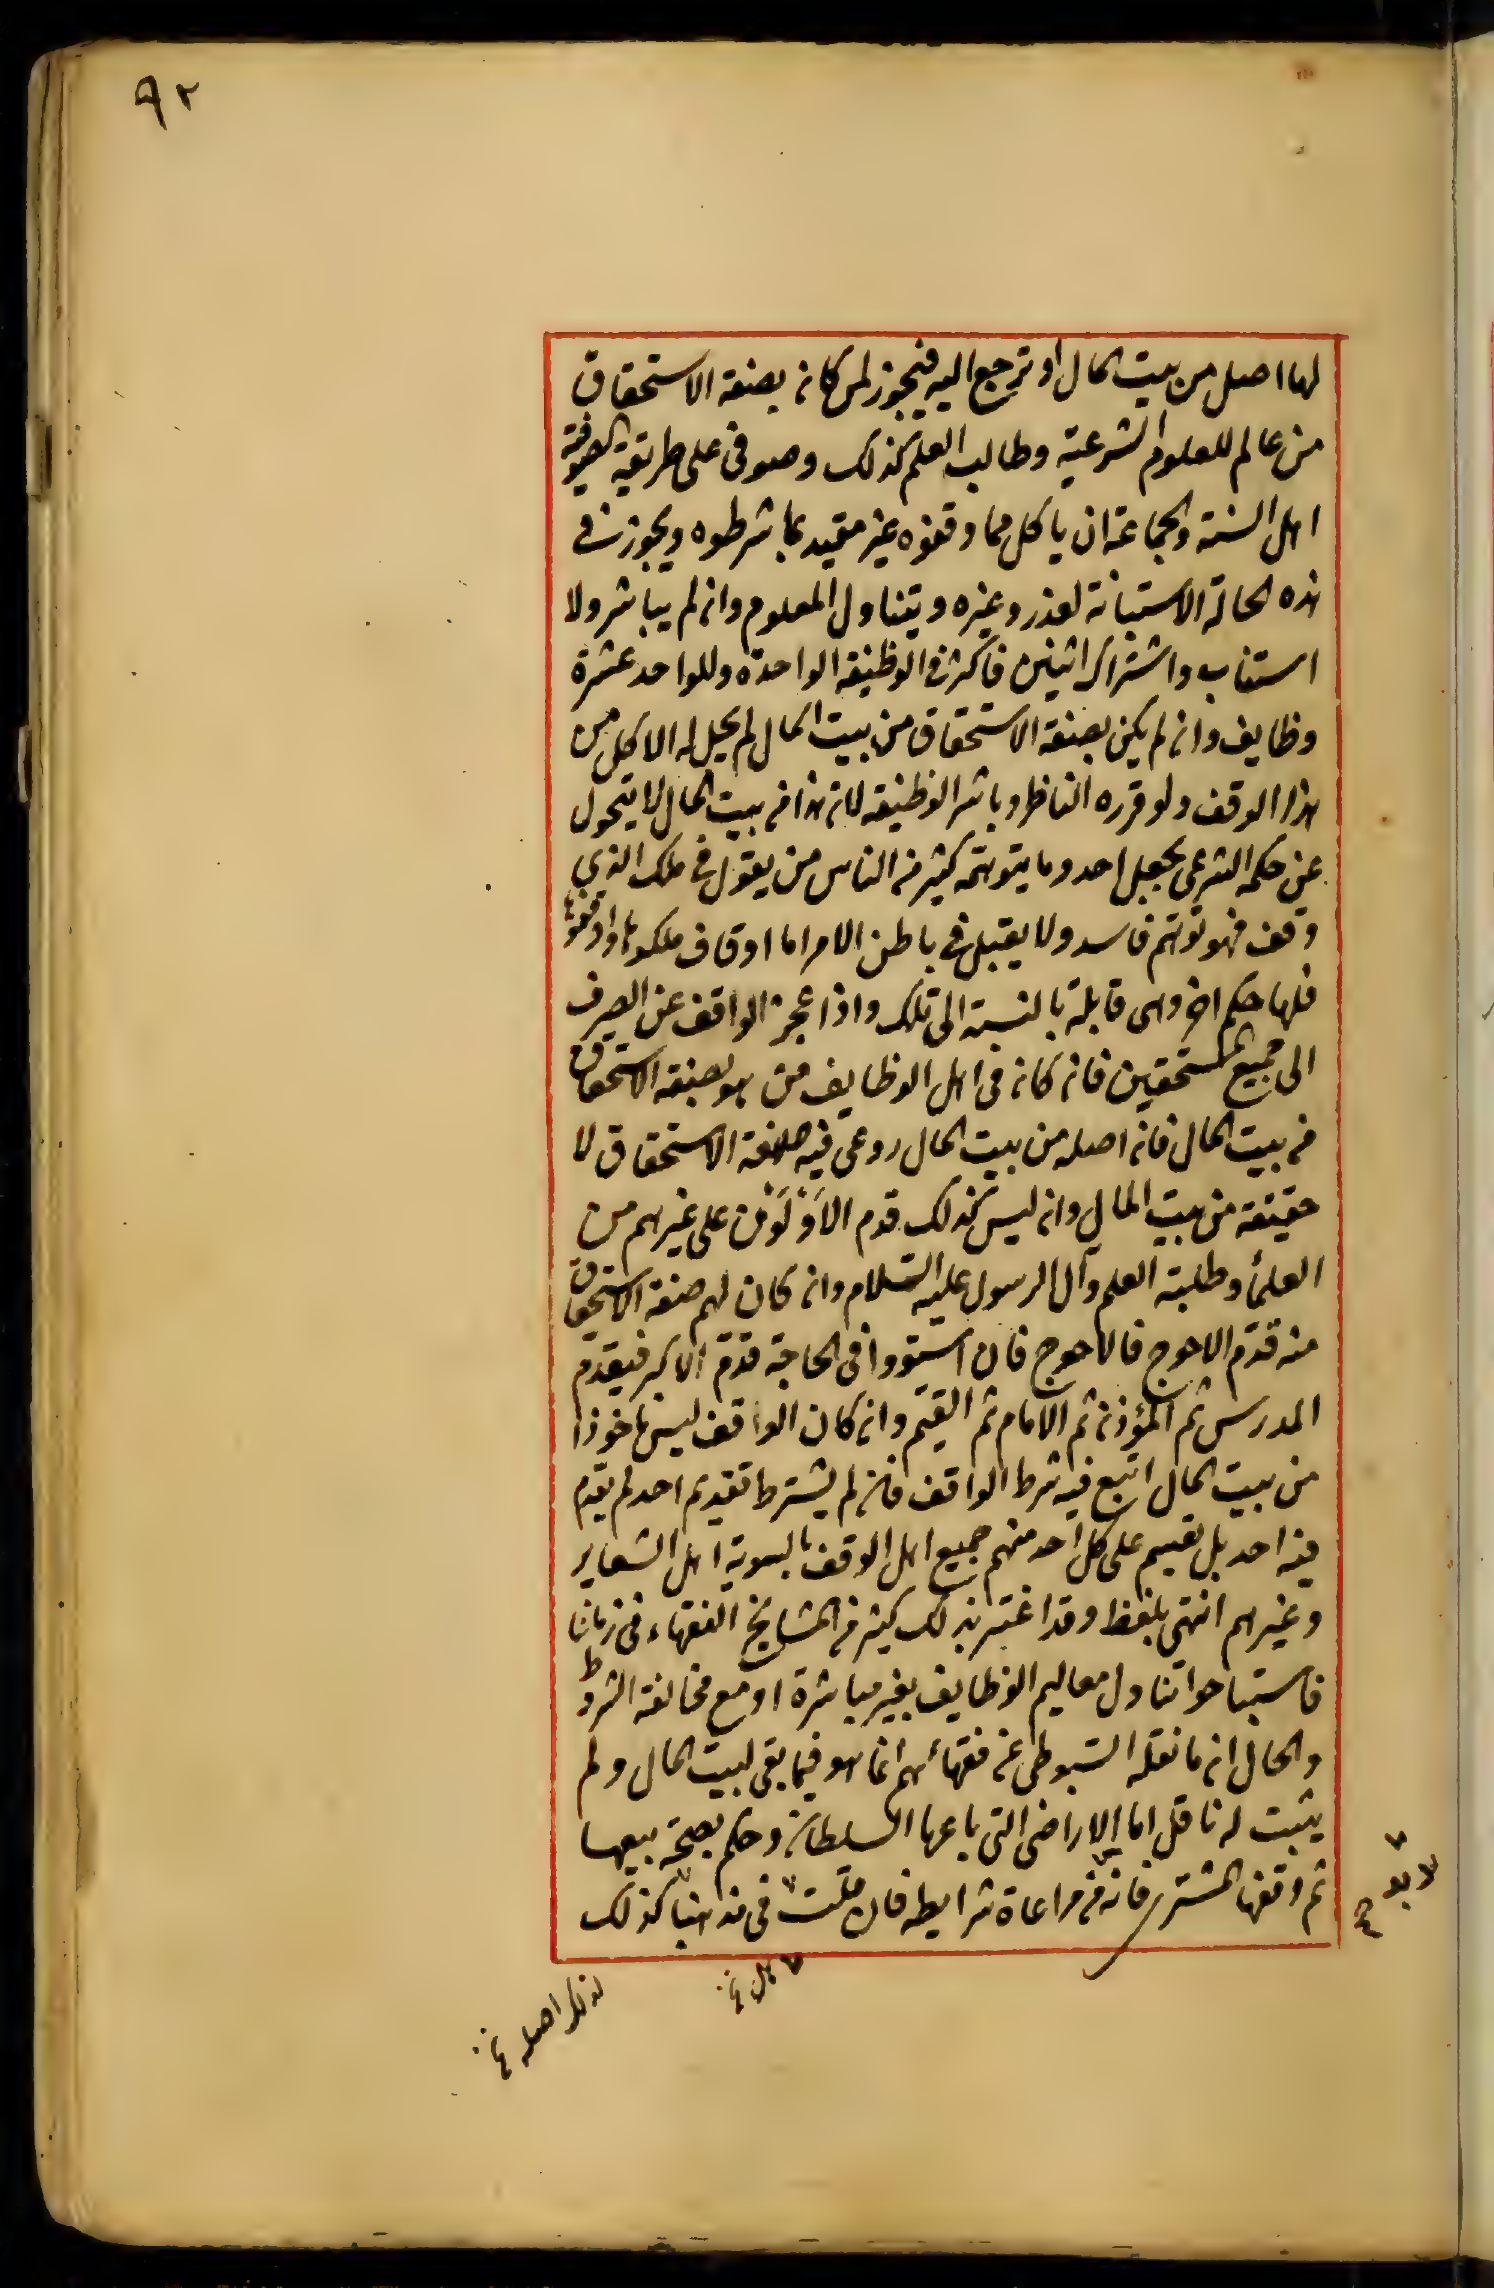 ٩٢
لها اصل من بيت المال او ترجع اليه فيجوز لمن كان بصفة الاستحقاق
من عالم للعلوم الشرعية وطالب العلم كذلك وصوفى على طريقة الصوفية
اهل السنة والجماعة ان ياكل مما وقفوه غير مقيد بما شرطوه ويجوز فى
هذه الحالة الاستبانة لعذر وغيره ويتناول المعلوم وان لم يباشر ولا
استناب واشتراك اثنين فاكثر فى الوظيفة الواحدة وللواحد عشرة
وظايف وان لم يكن بصفة الاستحقاق من بيت المال لم يحل له الاكل من
هذا الوقف ولو قرره الناظر وباشر الوظيفة لان هذا من بيت المال لا يتحول
عن حكمه الشرعى بجعل احد وما يتوهمه كثير من الناس من يقول فى ملك الذي
وقف فهو توهم فاسد ولا يقبل فى باطن الامر اما اوقاف ملكوها واوقفوها
فلها حكم اخر وهى قابلة بالنسبة الى تلك واذا عجز الواقف عن الصرف
الى جميع المستحقين فان كان فى اهل الوظايف من هو بصفة الاستحقاق
من بيت المال فان اصله من بيت المال روعى فيه صفة الاستحقاق لا
حقيقة من بيت المال وان ليس كذلك قدم الاَوْلَوْن على غيرهم من
العلمأ وطلبة العلم وآل الرسول عليه السلام وان كان لهم صفة الاستحقاق
منه قدم الاحوج فالاحوج فان استووا فى الحاجة قدم الاكبر فيقدم
المدرس ثم المؤذن ثم الامام ثم القيم وان كان الواقف ليس ماخوذا
من بيت المال اتبع فيه شرط الواقف فان لم يشترط تقديم احد لم يقدم
فيه احد بل تقسيم على كل احد منهم جميع اهل الوقف بالسوية اهل الشعاير
وغيرهم انتهى بلفظ وقد اغتر بذلك كثير من المشايخ الفقهاء فى زماننا
فاستباحوا تناول معاليم الوظايف بغير مباشرة او مع مخالفة الشروط
والحال ان ما نقله السيوطى عن فقهائهم انما هو فيما بقى لبيت المال ولم
يثبت له ناقل اما الاراضى التى باعها السلطان وحكم بصحة بيعها
ثم وقفها المشتر فانه من مراعاة شرايطه فان قلت فى مذهبنا كذلك
لا بد